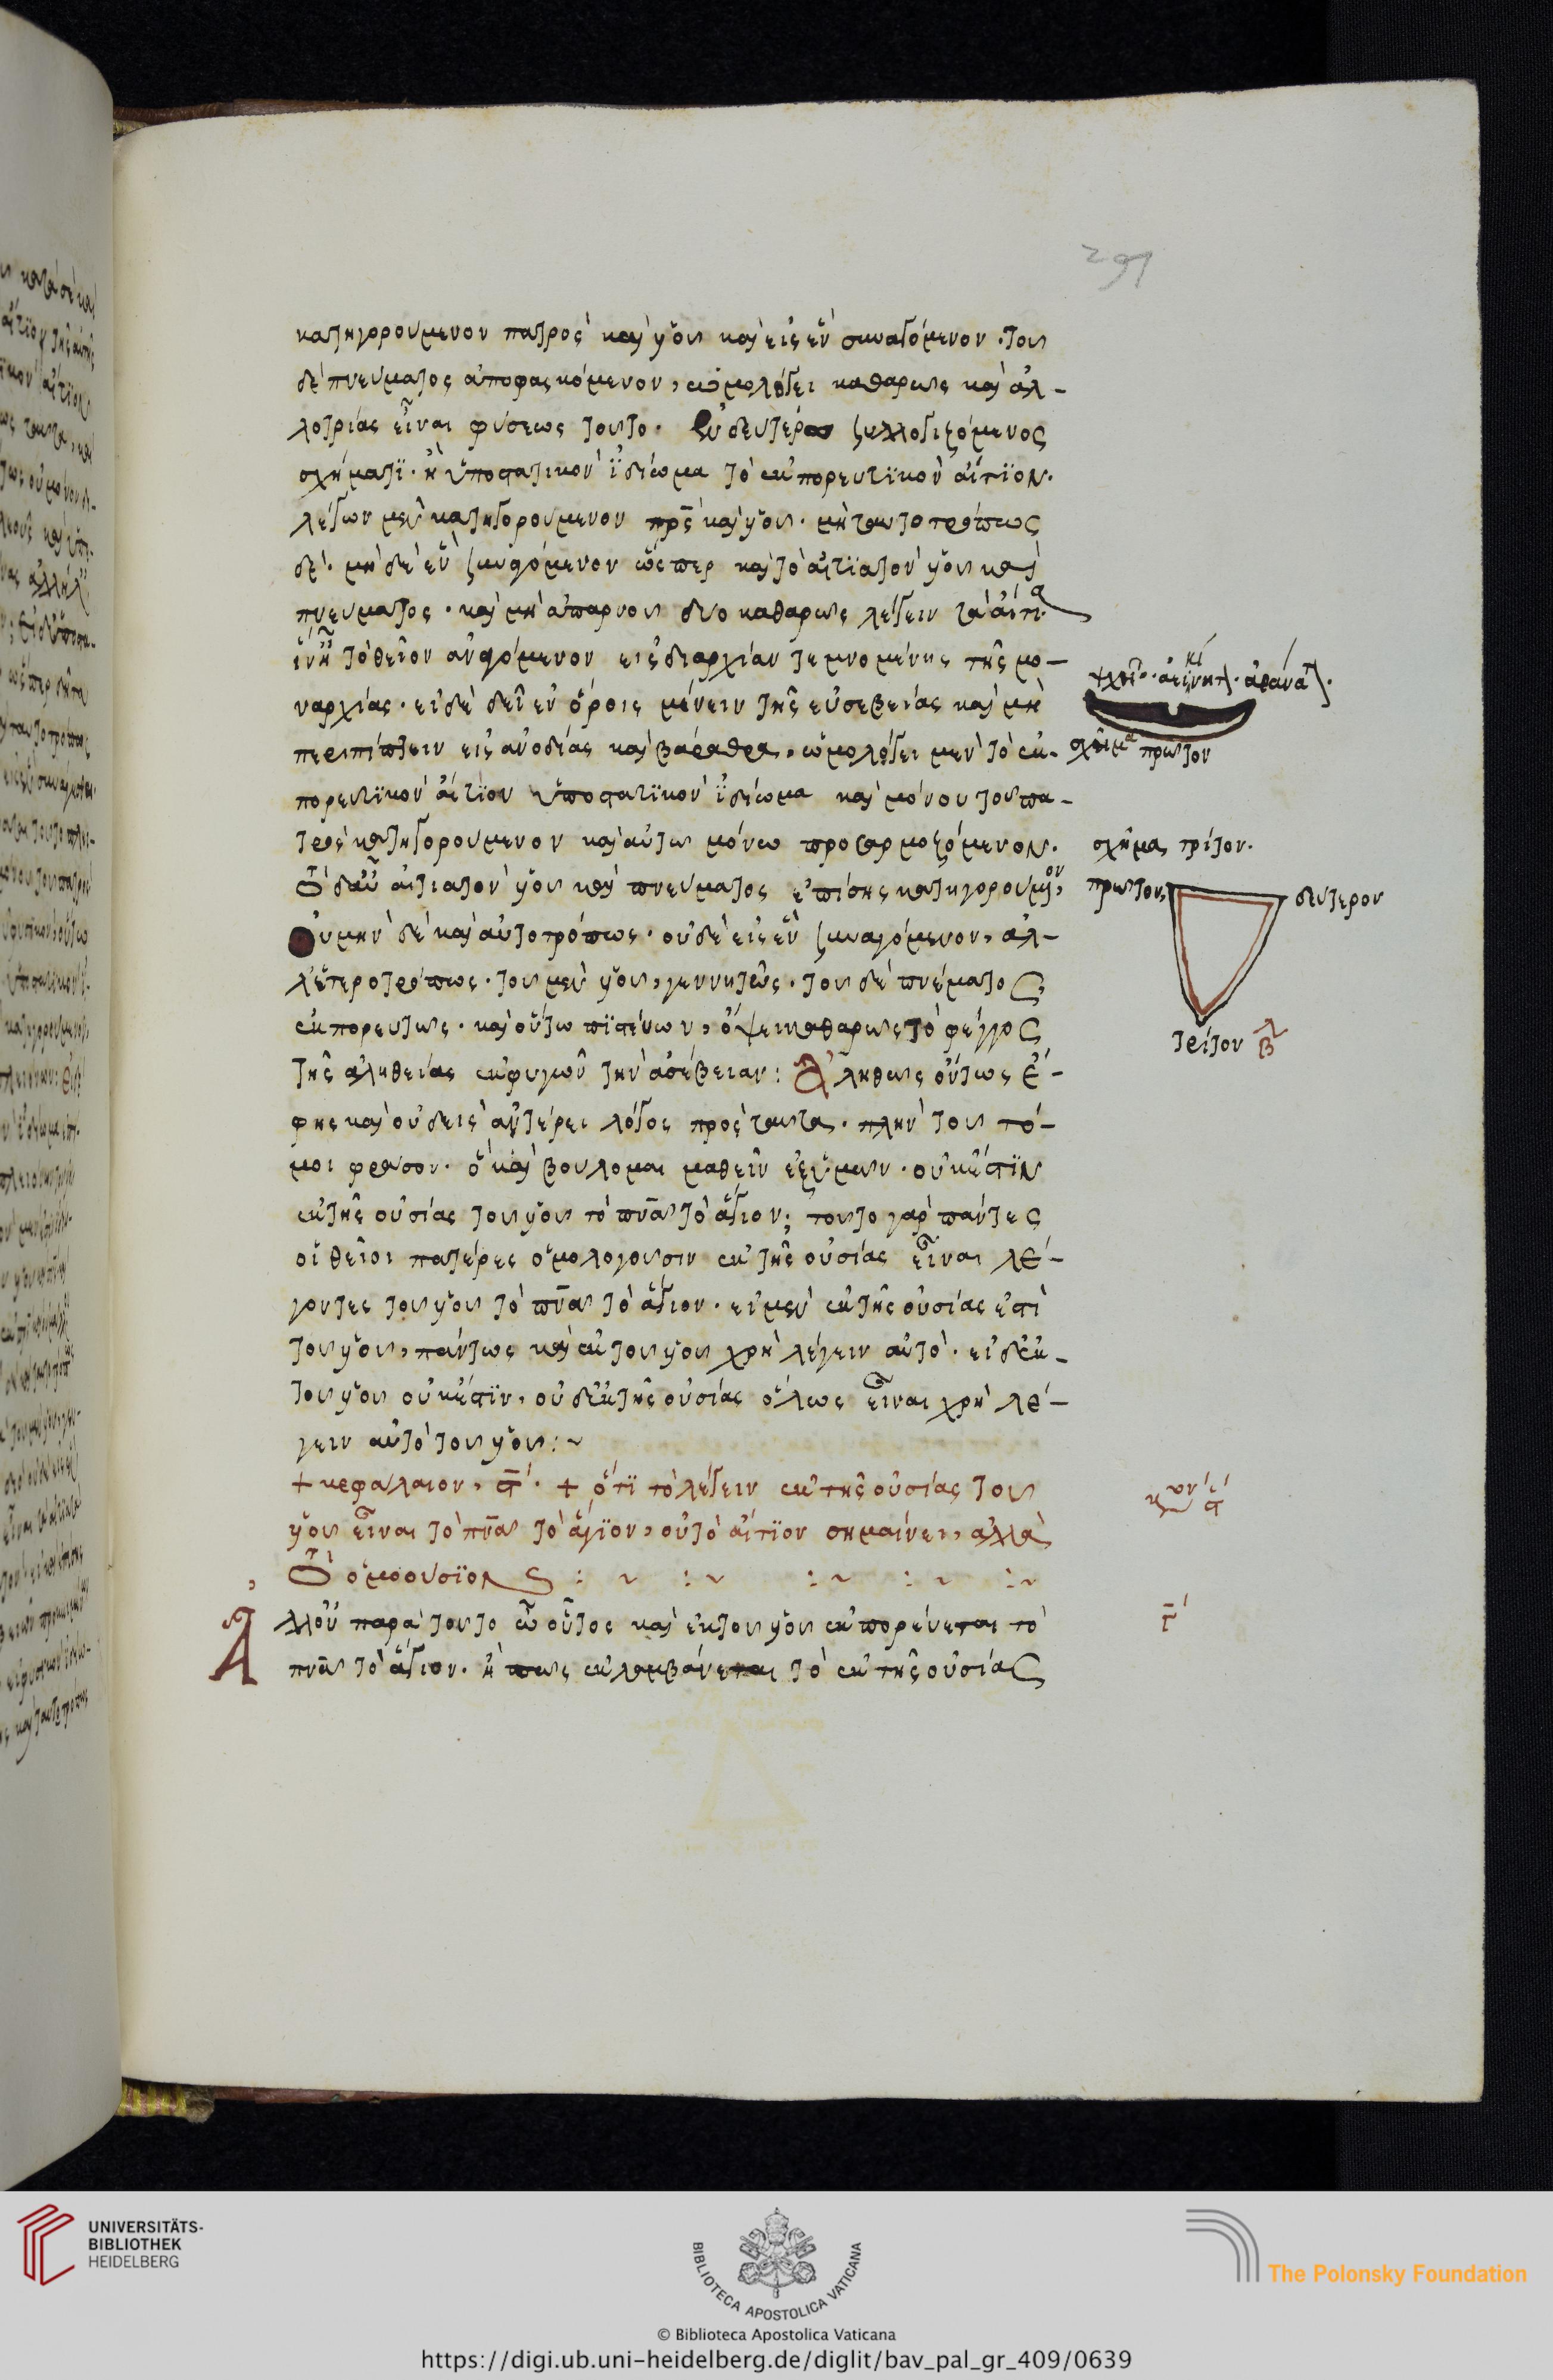 291
κατηγορούμενον πατρὸς καὶ υἱοῦ καὶ εἰς ἓν συναγόμενον. τοῦ
δὲ πνεύματος ἀποφασκόμενον, ὡμολόγει καθαρῶς καὶ ἀλ-
λοτρίας εἶναι φύσεως τοῦτο. δευτέρω συλλογιζόμενος
σχήματϊ. ἢ ὑποστατικὸν ἰδίωμα τὸ ἐκπορευτϊκὸν αἴτϊον.
λέγων μὲν κατηγορούμενον πρς καὶ υἱοῦ. μὴ ταυτοτρόπως
δὲ. μὴ δὲ ἓν συναγόμενον ὥσπερ καὶ τὸ αἰτϊατὸν υἱοῦ καὶ
πνεύματος. καὶ μὴ ἀπαρνοῦ δύο καθαρῶς λέγειν τὰ αἴτια
τὸ θεῖον ἀναγόμενον εἰς διαρχίαν τεμνομένης τῆς μο-
ναρχίας. εἰ δὲ δεῖ ἐν ὅροις μένειν τῆς εὐσεβείας καὶ μὴ
περιπίπτειν εἰς ἀνοδίας καὶ βάραθρα, ὡμολόγει μὲν τὸ ἐκ-
πορευτϊκὸν αἴτϊον ὑποστατϊκὸν ἰδίωμα καὶ μόνου τοῦ πα-
τρὸς κατηγορούμενον καὶ αὐτῶ μόνω προσαρμοζόμενον.
τὸ δ' αὖ αἰτιατὸν υἱοῦ καὶ πνεύματος ἐπίσης κατηγορούμενον,
οὐ μὴν δὲ καὶ αὐτοτρόπως. οὐδὲ εἰς ἓν συναγόμενον, ἀλ-
λ' ἑτεροτρόπως. τοῦ μὲν υἱοῦ, γεννητῶς. τοῦ δὲ πνεύματος
ἐκπορευτῶς. καὶ οὕτω πϊστεύων, ὄψει καθαρῶς τὸ φέγγος
τῆς ἀληθείας ἐκφυγὼν τὴν ἀσέβειαν: Ἀληθῶς οὕτως ἔ-
φης καὶ οὐδεὶς ἀντέρει λόγος πρὸς ταῦτα. πλὴν τοῦτό
μοι φράσον. ὃ καὶ βούλομαι μαθεῖν ἐξ ὑμῶν. οὐκ ἔστϊν
ἐκ τῆς οὐσίας τοῦ υἱοῦ τὸ πνα τὸ ἅγιον; τοῦτο γὰρ πάντες
οἱ θεῖοι πατέρες ὁμολογοῦσιν ἐκ τῆς οὐσίας εἶναι λέ-
γοντες τοῦ υἱοῦ τὸ πνα τὸ ἅγιον. εἰ μὲν ἐκ τῆς οὐσίας ἐστὶ
τοῦ υἱοῦ, πάντως καὶ ἐκ τοῦ υἱοῦ χρὴ λέγειν αὐτὸ. εἰ δ' ἐκ
τοῦ υἱοῦ οὐκ ἔστϊν, οὐδ' ἐκ τῆς οὐσίας ὅλως εἶναι χρὴ λέ-
γειν αὐτὸ τοῦ υἱοῦ:~
+ κεφάλαιον, ϛ'. + ὅτϊ τὸ λέγειν ἐκ τῆς οὐσίας τοῦ
υἱοῦ εἶναι τὸ πνα τὸ ἅγϊον, οὐ τὸ αἴτϊον σημαίνει, ἀλλὰ
τὸ ὁμοούσϊον : ~ : ~ : ~ : ~ : ~
Ἀλλ' οὐ παρὰ τοῦτο ὦ οὗτος καὶ ἐκ τοῦ υἱοῦ ἐκπορεύεται τὸ
πνα τὸ ἅγιον. ἢ πῶς ἐκλαμβάνεται τὸ ἐκ τῆς οὐσίας
σχῆμα πρῶτον
σχῆμα τρίτον.
πρῶτον
δεύτερον
τρίτον
UNIVERSITÄTS-
BIBLIOTHEK
HEIDELBERG
BIBLIOTECA APOSTOLICA VATICANA
The Polonsky Foundation
© Biblioteca Apostolica Vaticana
https://digi.ub.uni-heidelberg.de/diglit/bav_pal_gr_409/0639